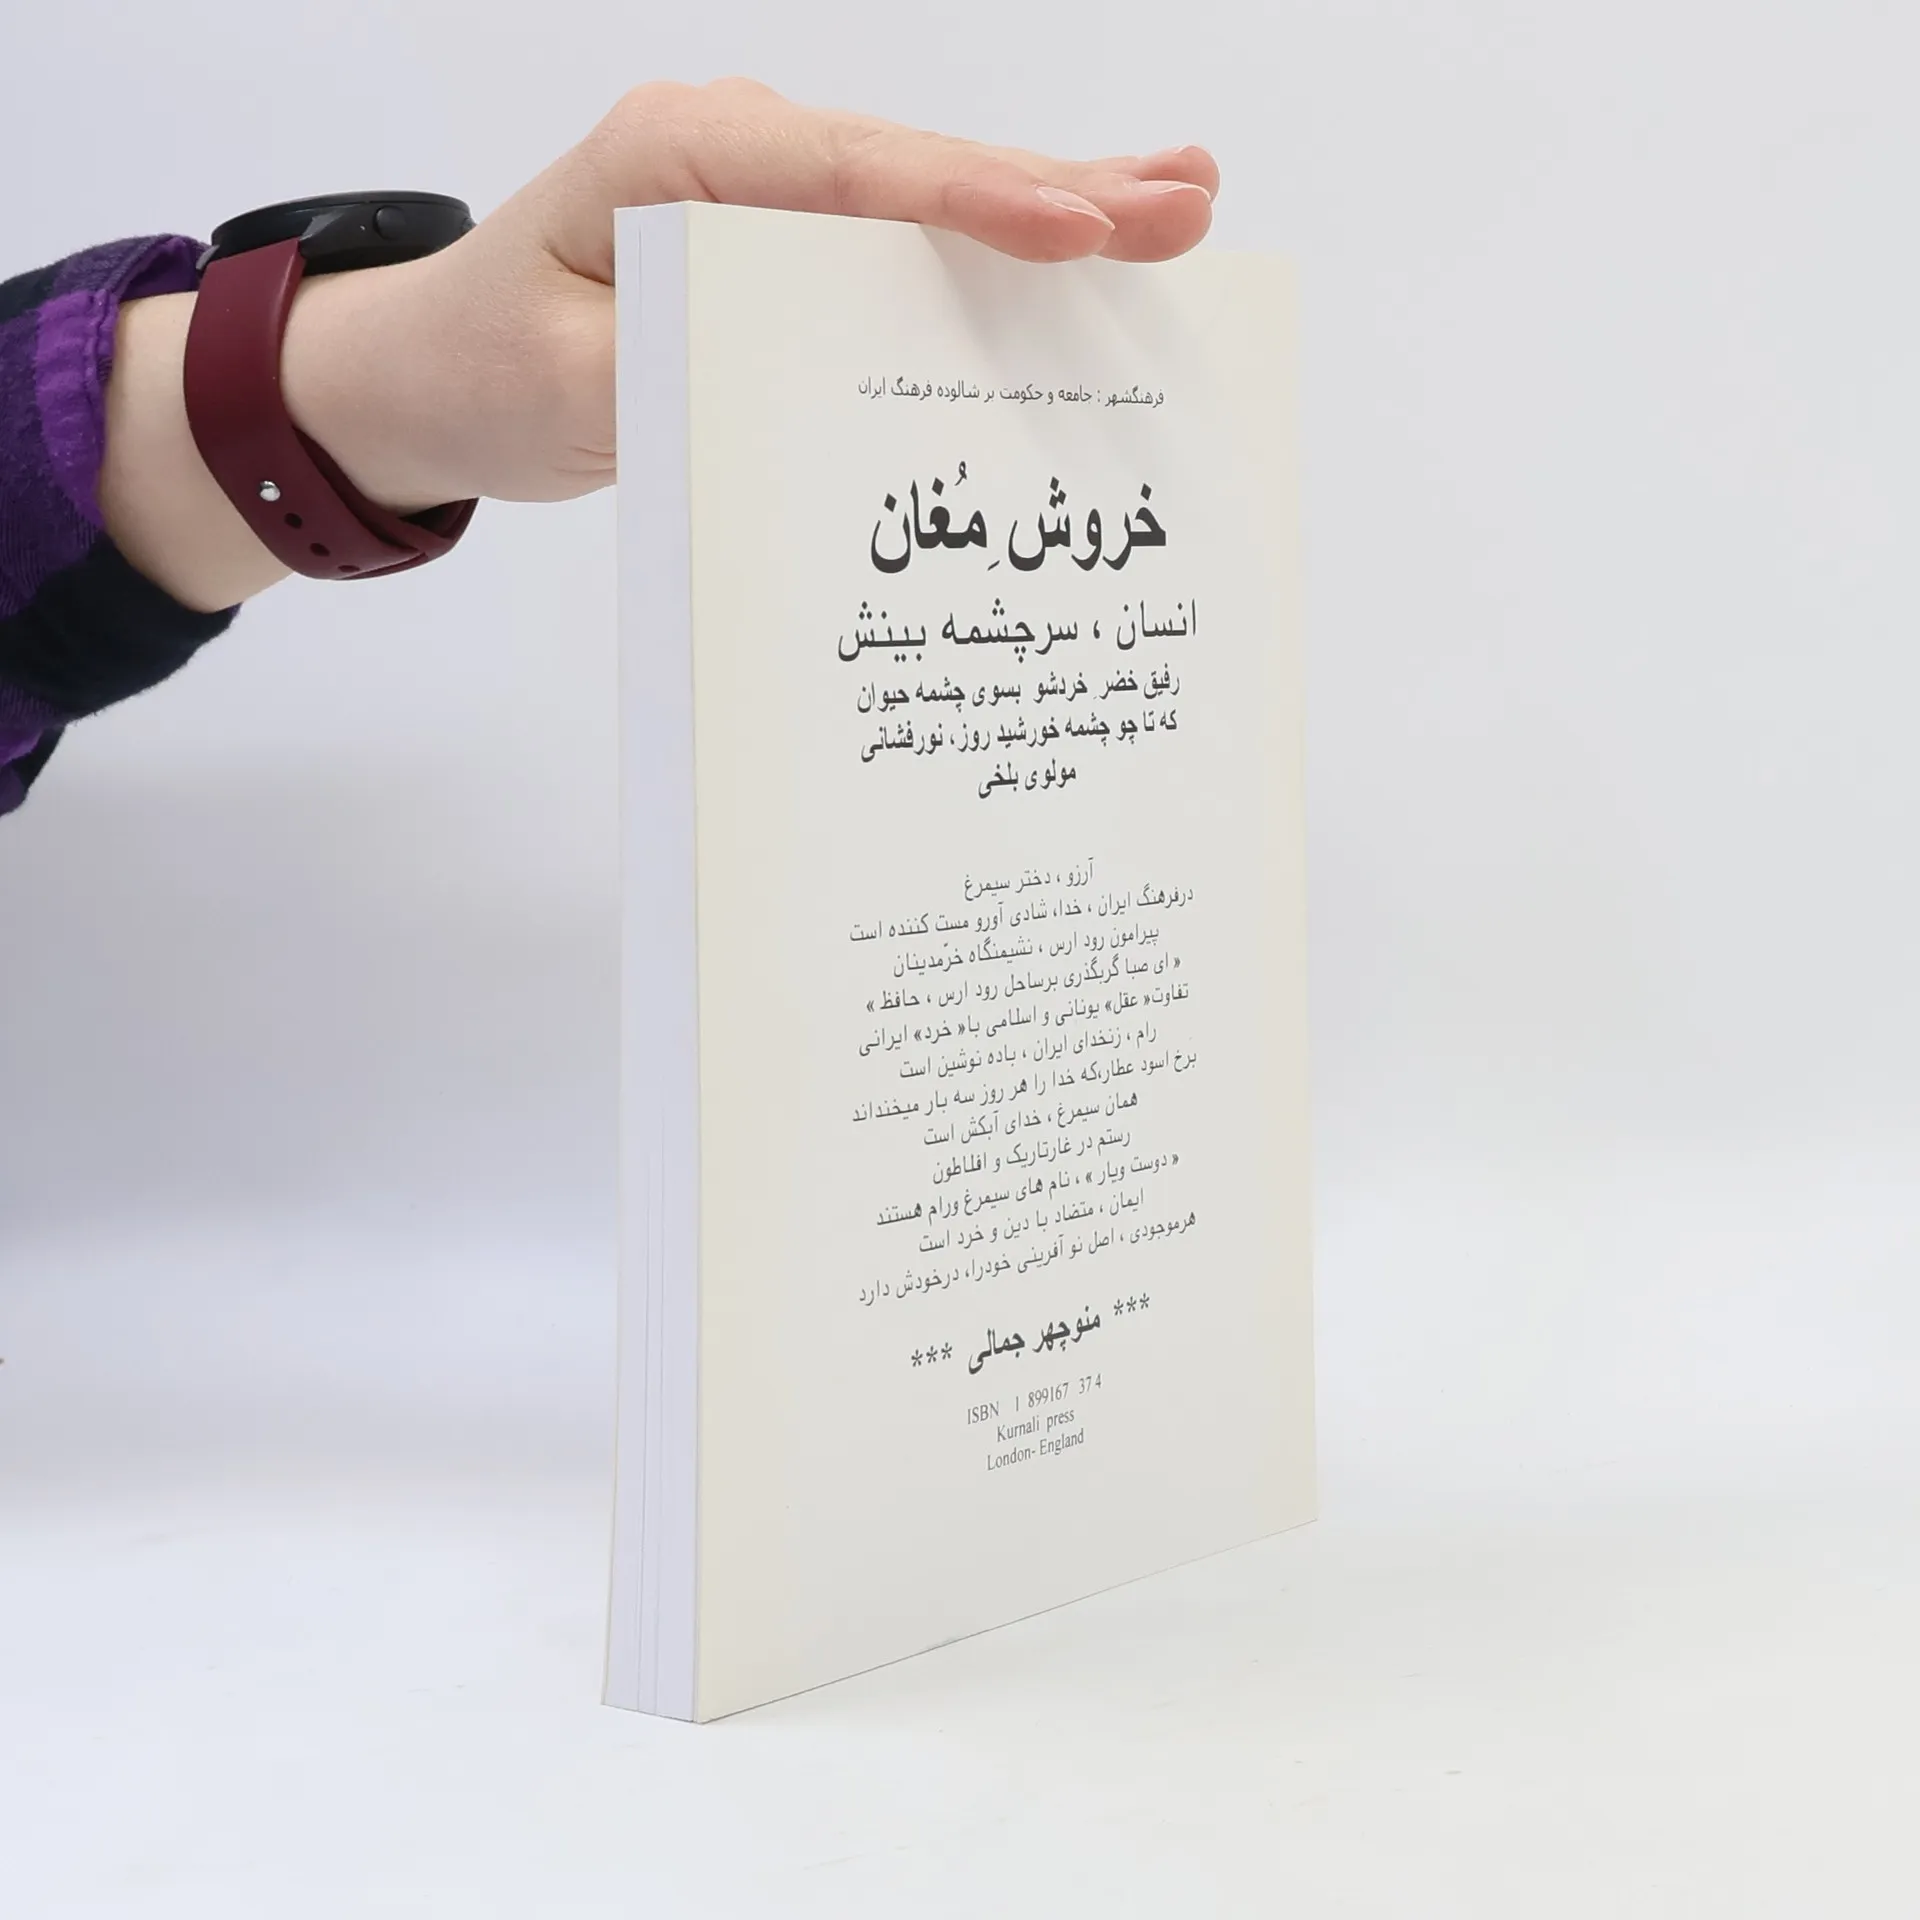 فرهنگشهر : جامعه و حکومت بر شالوده فرهنگ ایران
خروشِ مُغان
انسان ، سرچشمه بینش
رفیق خضرِ خردشو بسوی چشمه حیوان
که تا چو چشمه خورشید روز، نورفشانی
مولوی بلخی
آرزو ، دختر سیمرغ
درفرهنگ ایران ، خدا، شادی آورو مست کننده است
پیرامون رود ارس ، نشیمنگاه خرّمدینان
« ای صبا گربگذری برساحل رود ارس ، حافظ »
تفاوت« عقل» یونانی و اسلامی با« خرد» ایرانی
رام ، زنخدای ایران ، باده نوشین است
برخ اسود عطار،که خدا را هر روز سه بار میخنداند
همان سیمرغ ، خدای آبکش است
رستم در غارتاریک و افلاطون
« دوست ویار» ، نام های سیمرغ ورام هستند
ایمان ، متضاد با دین و خرد است
هرموجودی ، اصل نو آفرینی خودرا، درخودش دارد
*** منوچهر جمالی ***
ISBN 1 899167 37 4
Kurnali press
London- England